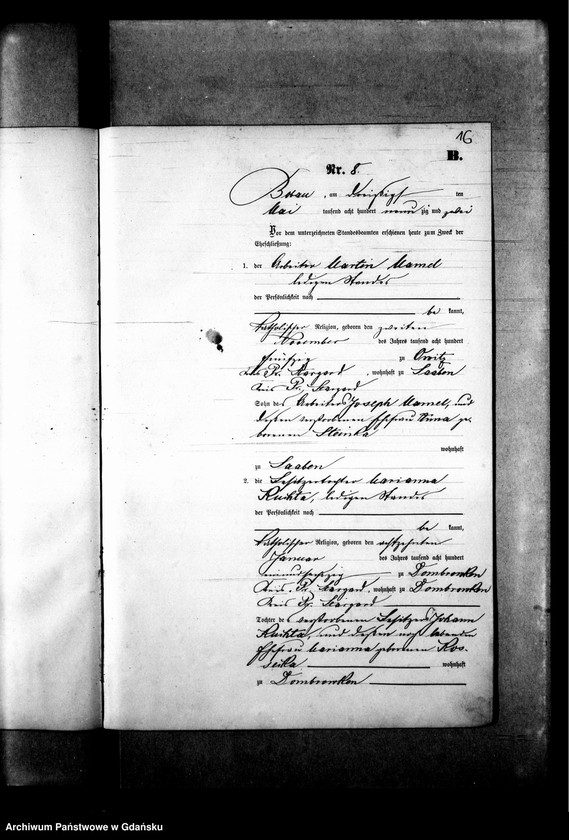 16
B.
Nr. 8.
, am Dreißigsten
Mai tausend acht hundert neunzig und zwei
Vor dem unterzeichneten Standesbeamten erschienen heute zum Zweck der
Eheschließung:
1. der Arbeiter Martin Mamel
ledigen Standes
der Persönlichkeit nach
be kannt,
katholischer Religion, geboren den zweiten
November des Jahres tausend acht hundert
fünfzig zu
Kreis Pr. Stargard, wohnhaft zu Saaben
Kreis Pr. Stargard
Sohn des Arbeiters Joseph Mamel, und
dessen verstorbenen Ehefrau Anna ge¬
borenen
wohnhaft
zu Saaben
2. die Besitzertochter Marianna
ledigen Standes
der Persönlichkeit nach
be kannt,
katholischer Religion, geboren den achtzehnten
Januar des Jahres tausend acht hundert
zu Dombrowken
Kreis Pr. Stargard, wohnhaft zu Dombrowken
Kreis Pr. Stargard
Tochter des verstorbenen Besitzers Johann
und dessen noch lebenden
Ehefrau Marianna geborenen
wohnhaft
zu Dombrowken
Archiwum Państwowe w Gdańsku